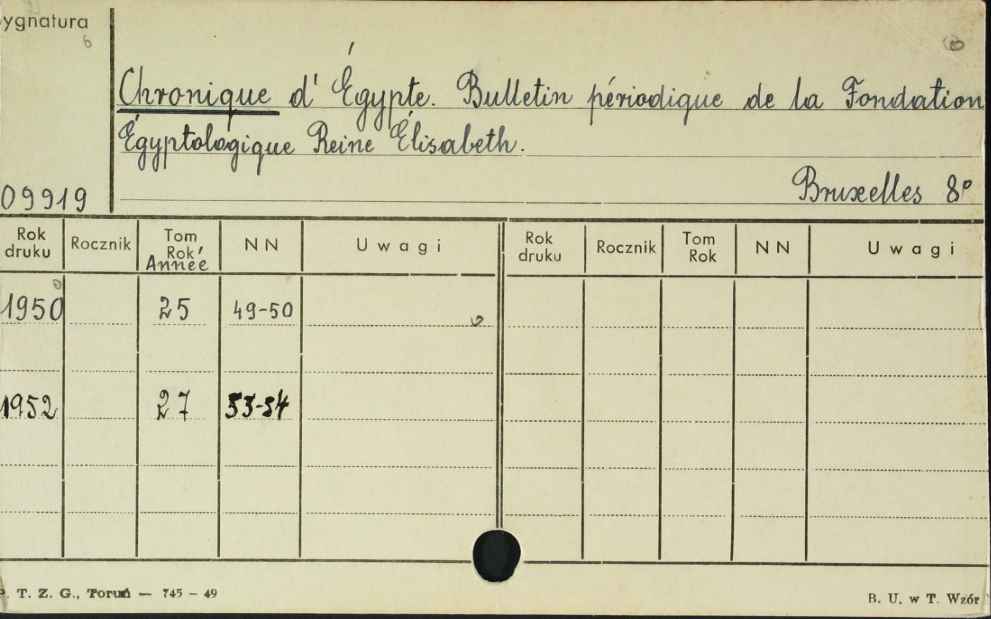 ygnatura
Chronique d'Égypte. Bulletin périodique de la Fondation
Égyptologique Reine Élisabeth.
09919
Bruxelles 8°
Rok druku Rocznik Tom Rok Année NN Uwagi Rok druku Rocznik Tom Rok NN Uwagi
1950 25 49-50
1952 27 53-54
P. T. Z. G., Toruń — 745 — 49
B. U. w T. Wzór